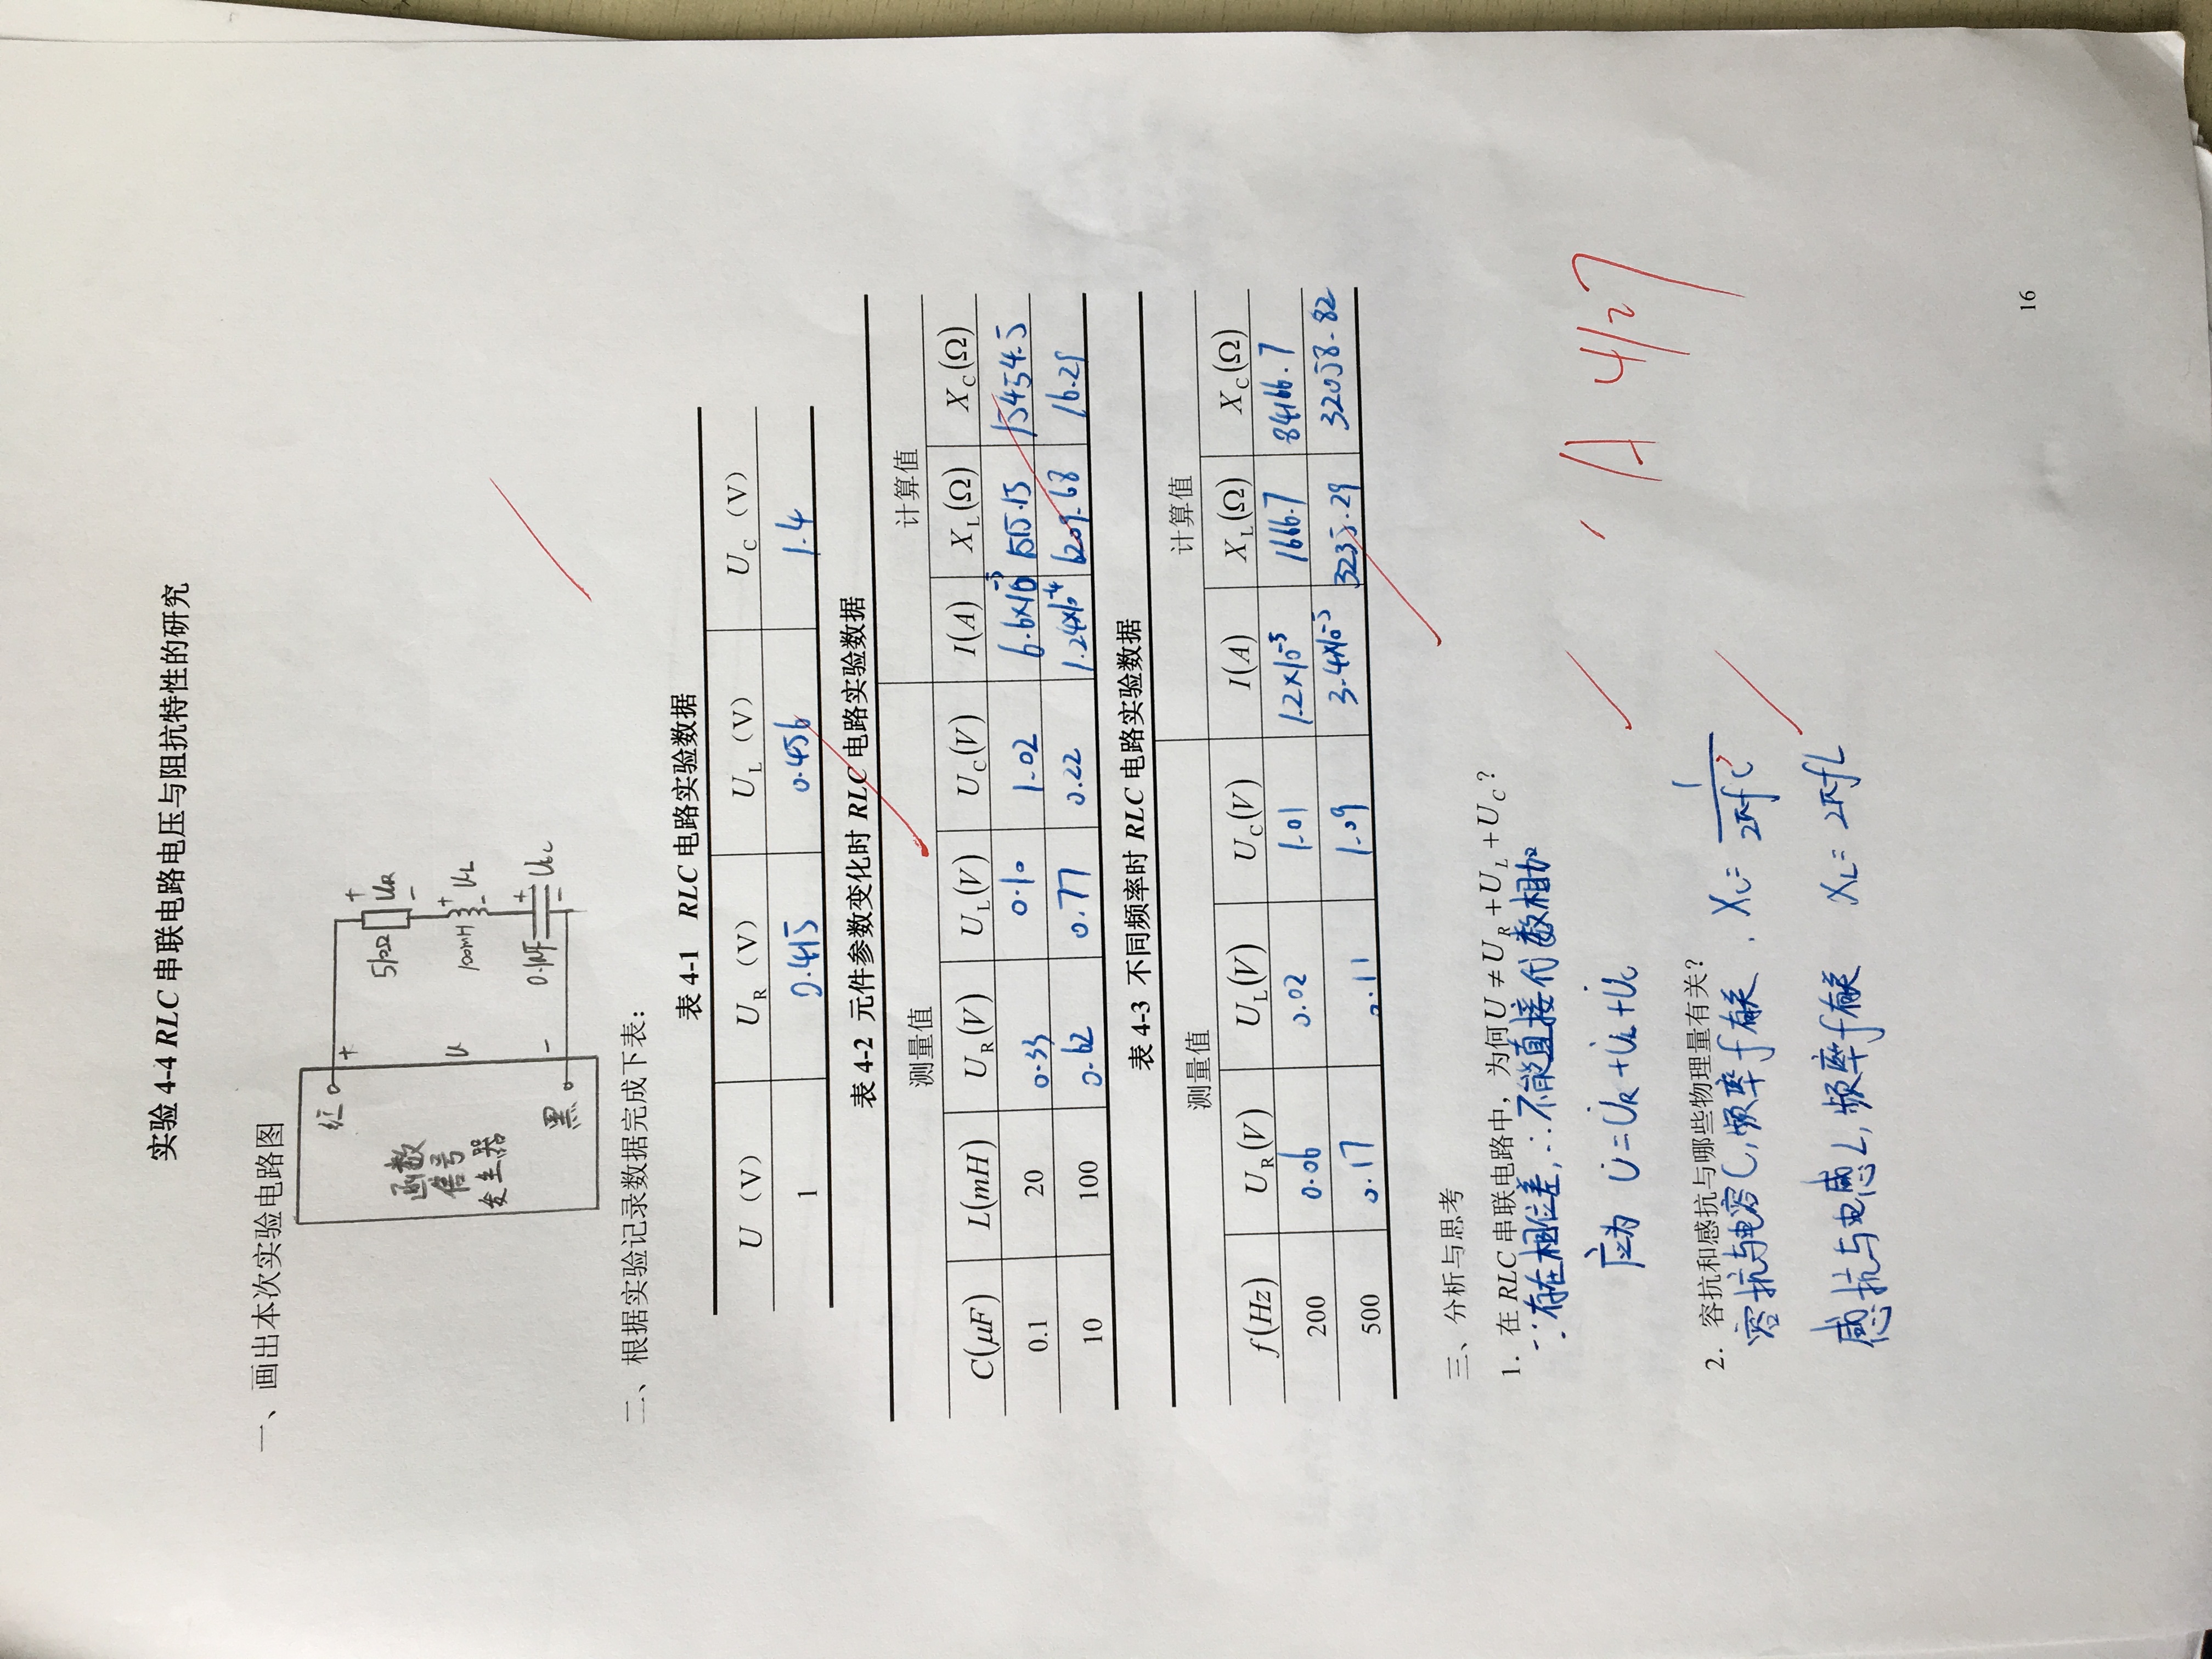 实验 4-4 RLC 串联电路电压与阻抗特性的研究
一、画出本次实验电路图
红
+
函数
信号
发生器
U
510Ω
+
UR
-
100mH
+
UL
-
0.1μF
+
UC
-
黑
-
二、根据实验记录数据完成下表：
表 4-1 RLC 电路实验数据
U（V） UR（V） UL（V） UC（V）
1 0.415 0.456 1.4
表 4-2 元件参数变化时 RLC 电路实验数据
测量值 计算值
C(μF) L(mH) UR(V) UL(V) UC(V) I(A) XL(Ω) XC(Ω)
0.1 20 0.33 0.10 1.02 6.6×10⁻⁵ 1515.15 15454.5
10 100 0.62 0.77 0.22 1.24×10⁻⁴ 6209.68 16.29
表 4-3 不同频率时 RLC 电路实验数据
测量值 计算值
f(Hz) UR(V) UL(V) UC(V) I(A) XL(Ω) XC(Ω)
200 0.06 0.02 1.01 1.2×10⁻⁵ 1666.7 84166.7
500 0.17 0.11 1.09 3.4×10⁻⁵ 3235.29 32058.82
三、分析与思考
1. 在 RLC 串联电路中，为何U≠UR+UL+UC？
∵存在相位差,∴不能直接代数相加
应为 U̇=U̇R+U̇L+U̇C
A 4/27
2. 容抗和感抗与哪些物理量有关？
容抗与电容C,频率f有关. XC=1/2πfC
感抗与电感L,频率f有关 XL=2πfL
16